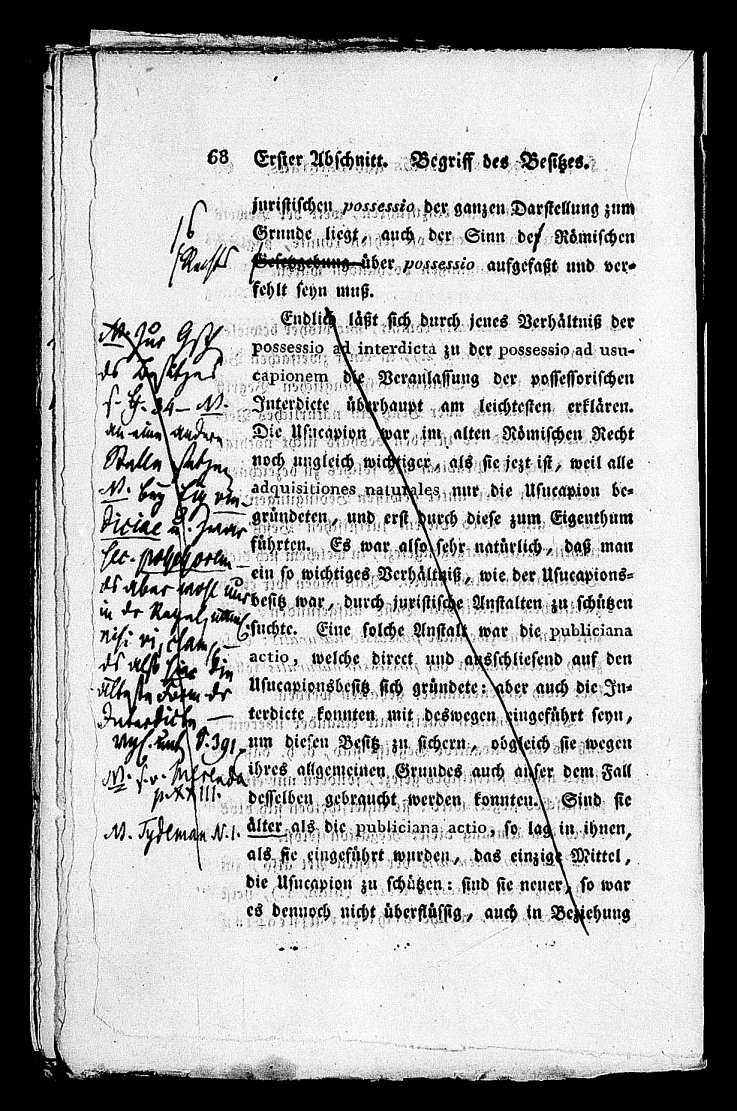 68 Erſter Abſchnitt. Begriff des Beſitzes.
juriſtiſchen possessio der ganzen Darſtellung zum
Grunde liegt, auch der Sinn der Römiſchen
Geſetzgebung über possessio aufgefaßt und ver-
fehlt ſeyn muß.
Endlich läßt ſich durch jenes Verhältniß der
possessio ad interdicta zu der possessio ad usu-
capionem die Veranlaſſung der poſſeſſoriſchen
Interdicte überhaupt am leichteſten erklären.
Die Uſucapion war im alten Römiſchen Recht
noch ungleich wichtiger, als ſie jezt iſt, weil alle
adquisitiones naturales nur die Uſucapion be-
gründeten, und erſt durch dieſe zum Eigenthum
führten. Es war alſo ſehr natürlich, daß man
ein ſo wichtiges Verhältniß, wie der Uſucapions-
beſitz war, durch juriſtiſche Anſtalten zu ſchützen
ſuchte. Eine ſolche Anſtalt war die publiciana
actio, welche direct und ausſchlieſend auf den
Uſucapionsbeſitz ſich gründete: aber auch die In-
terdicte konnten mit deswegen eingeführt ſeyn,
um dieſen Beſitz zu ſichern, obgleich ſie wegen
ihres allgemeinen Grundes auch auſer dem Fall
deſſelben gebraucht werden konnten. Sind ſie
älter als die publiciana actio, ſo lag in ihnen,
als ſie eingeführt wurden, das einzige Mittel,
die Uſucapion zu ſchützen: ſind ſie neuer, ſo war
es dennoch nicht überflüſſig, auch in Beziehung
16
Rechts
des Besitzes
an eine andere
Stelle setzen
in der Regel
älteste Form der
Interdicte —
S. 391.
p. XXIII.
N. Tydeman N. 1.